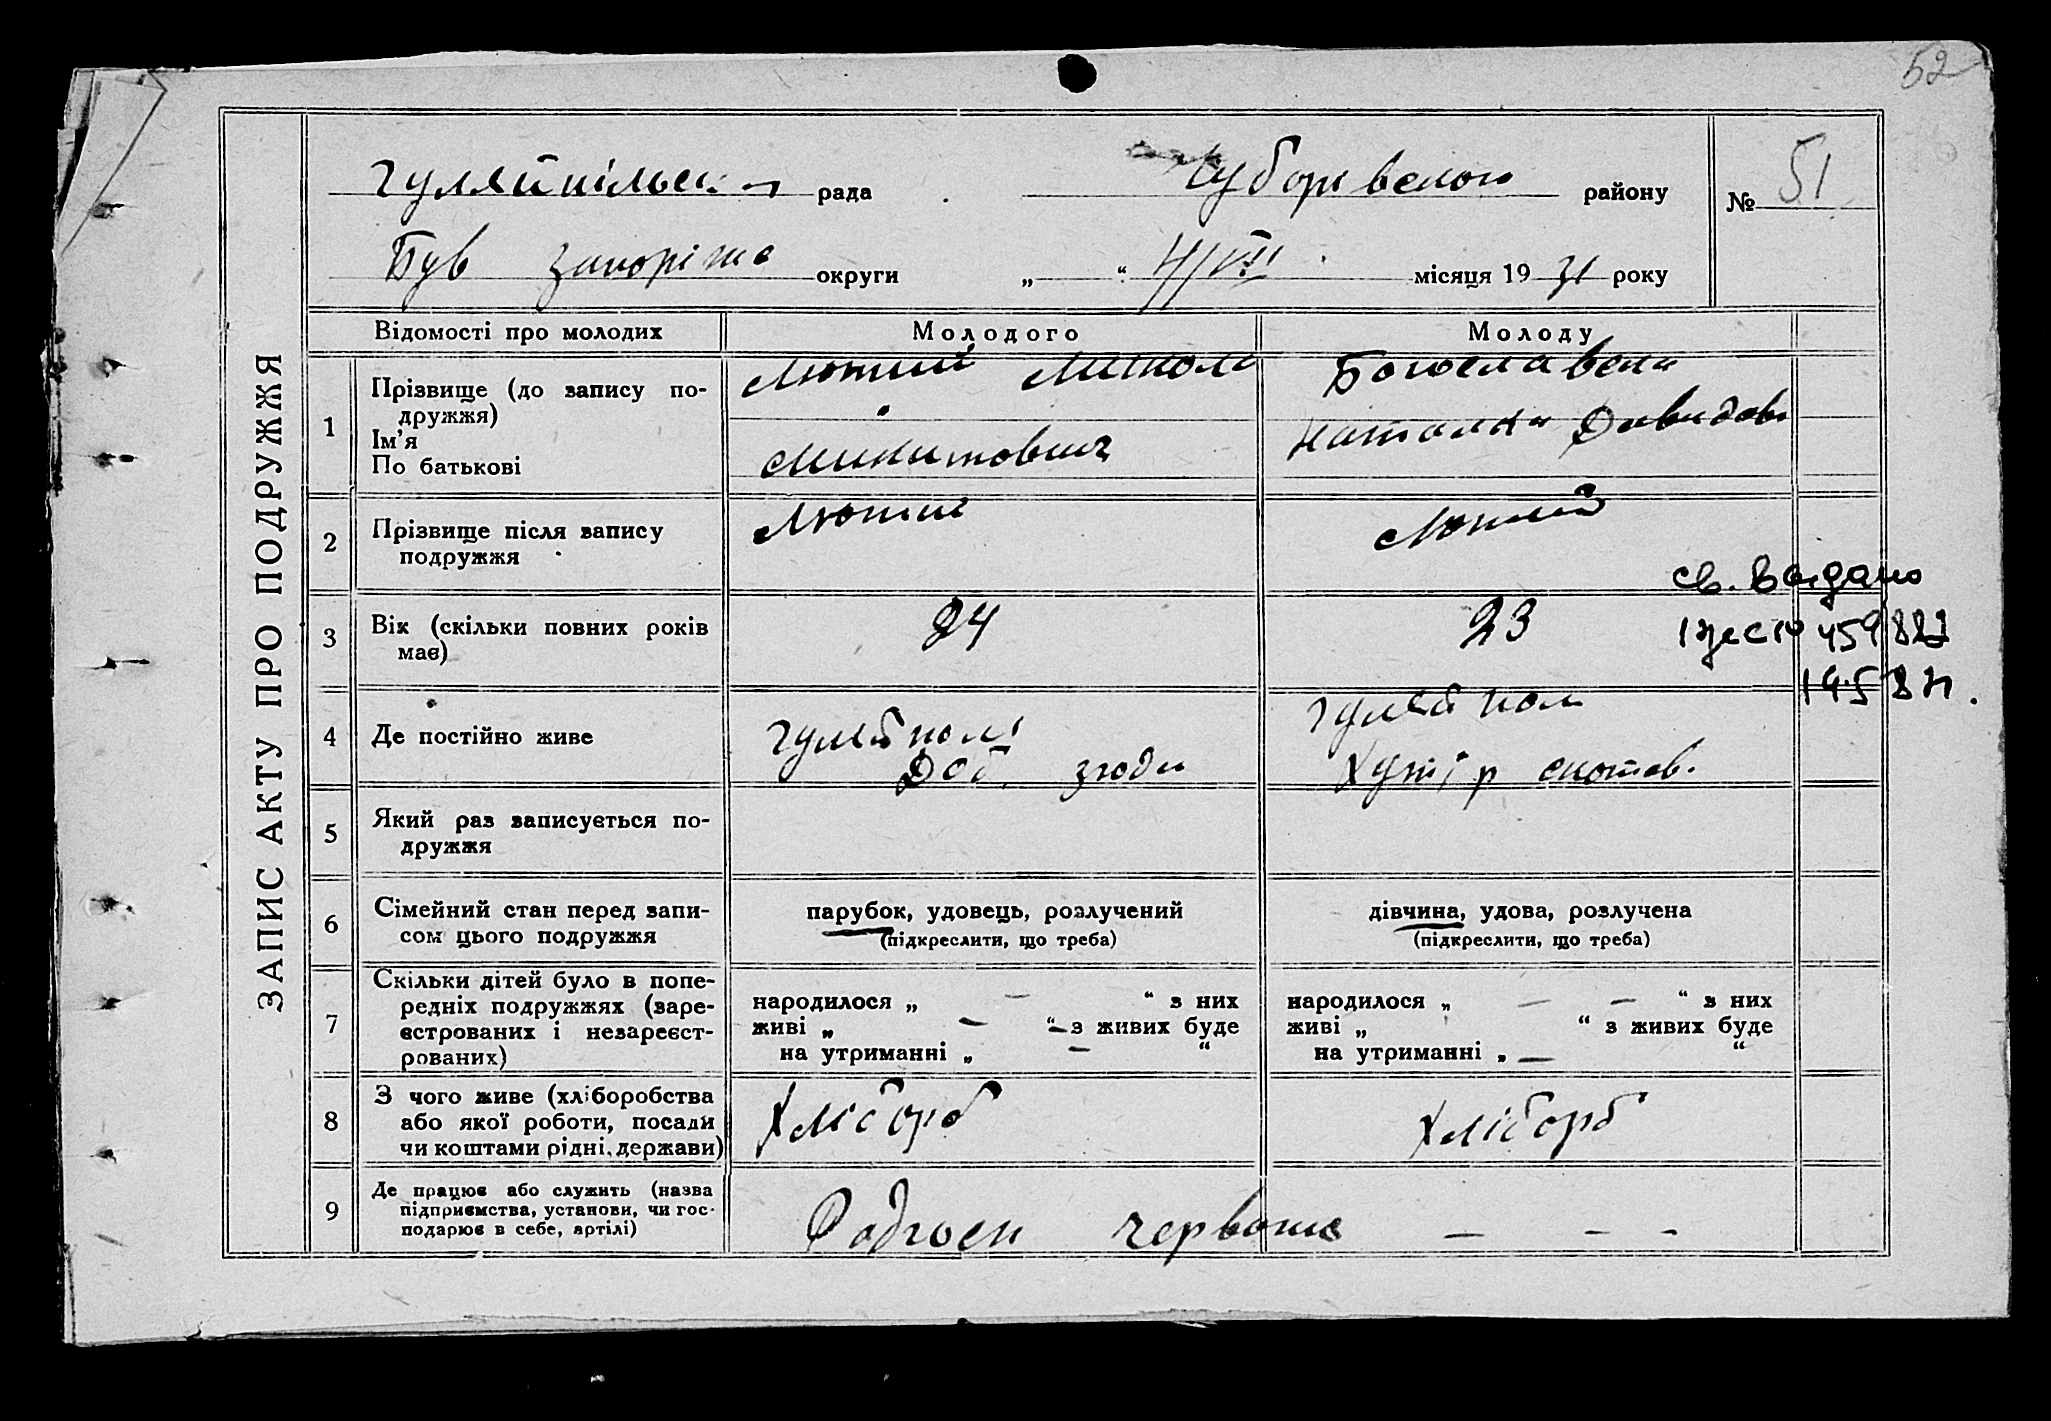 52
ЗАПИС АКТУ ПРО ПОДРУЖЖЯ
Гуляйпільськ рада Чубарівського району № 51
Був Запоріжс округи „ “ 4/VIII місяця 1931 року
Відомості про молодих Молодого Молоду
1 Прізвище (до запису по-
дружжя)
Ім’я
По батькові
Лютий Микола
Микитович
Богославска
Наталка Давидов
2 Прізвище після запису
подружжя
Лютий
Лютий
св. выдано
459882
3 Вік (скільки повних років
має)
24
23
4 Де постійно живе
Гуляйполі
згоди
Гуляйпол
Хутір
5 Який раз записується по-
дружжя
6 Сімейний стан перед запи-
сом цього подружжя
парубок, удовець, розлучений
(підкреслити, що треба)
дівчина, удова, розлучена
(підкреслити, що треба)
7 Скільки дітей було в попе-
редніх подружжях (заре-
єстрованих і незареєст-
рованих)
народилося „ — “ з них
живі „ — “ — з живих буде
на утриманні „ — “
народилося „ — — “ з них
живі „ “ з живих буде
на утриманні „ — “
8 З чого живе (хліборобства
або якої роботи, посади
чи коштами рідні, держави)
Хлібороб
Хлібороб
9 Де працює або служить (назва
підприємства, установи, чи гос-
подарює в себе, артілі)
Радгосп
— - -